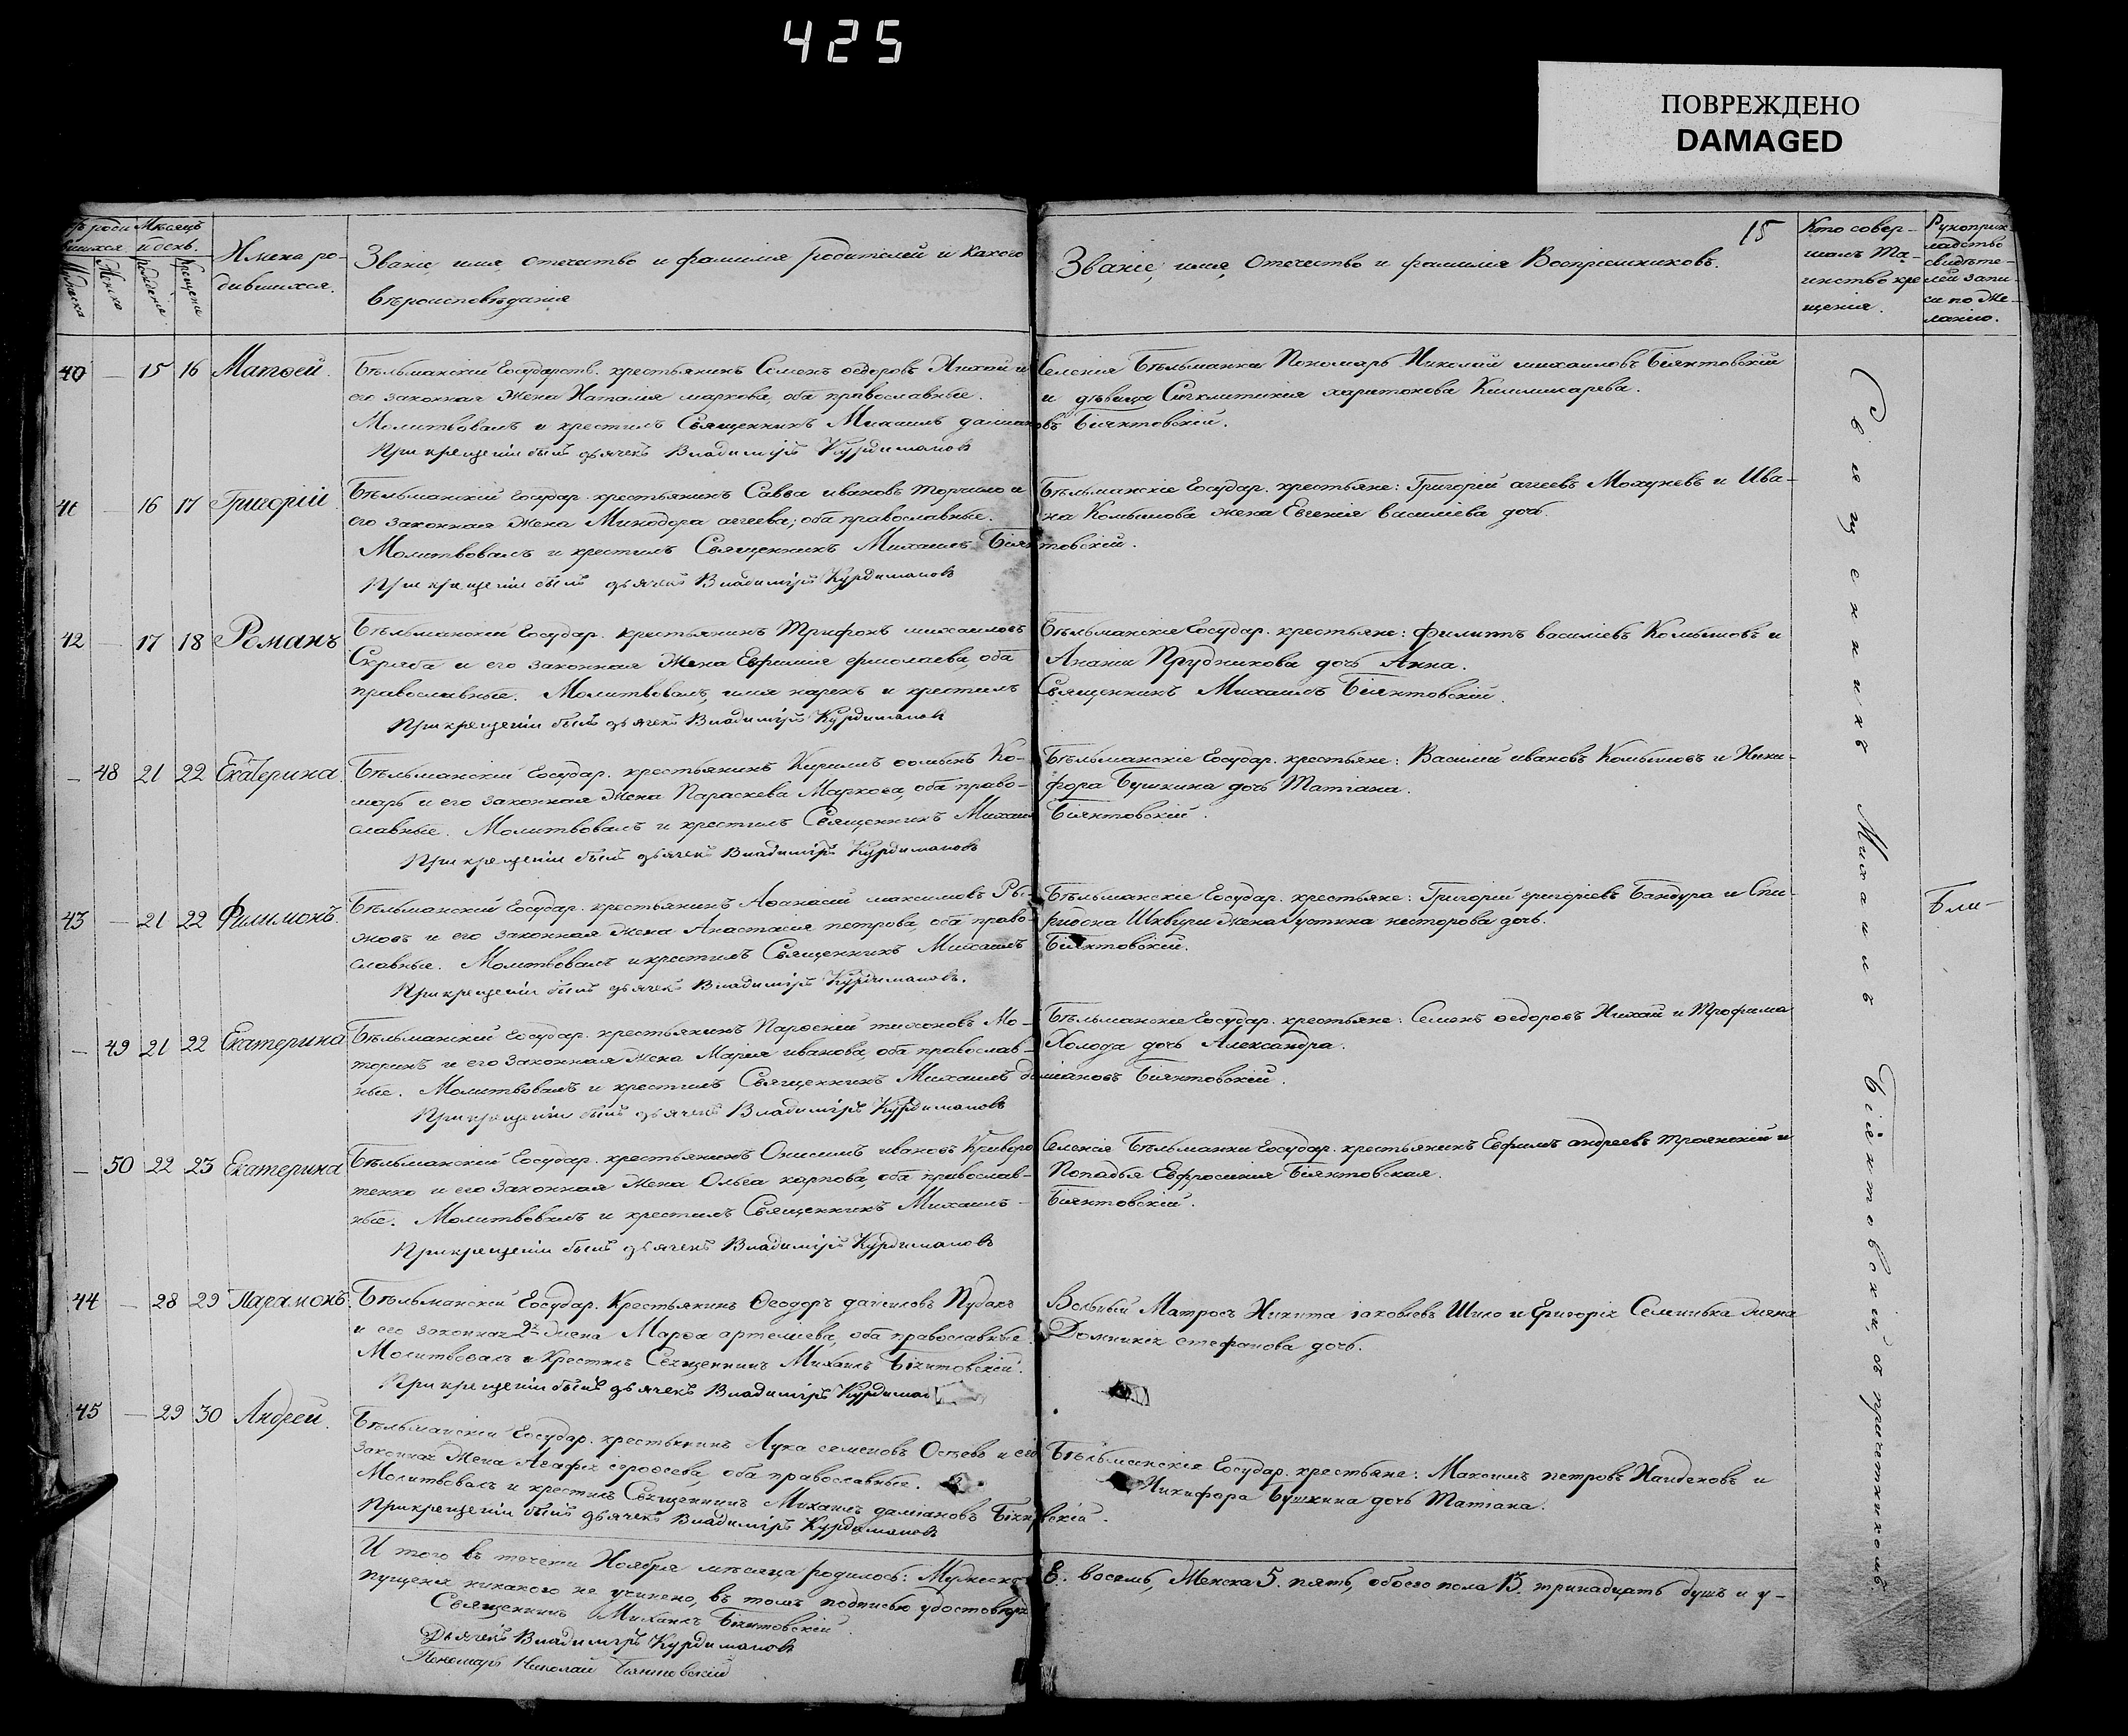 425
ПОВРЕЖДЕНО
DAMAGED
15
Мѣсяцъ
и день.
Имена ро-
дившихся.
Званіе, имя, отечество и фамилія родителей и какого
вѣроисповѣданія
Званіе, имя, Отечество и фамилія Воспріемниковъ.
Кто совер-
шалъ Та-
инство кре
щенія.
Рукоприк-
ладство
свидѣте-
лей запи-
си по же-
ланію.
40 — 15 16 Матѳей.
Бѣльманскій Государств. крестьянинъ Семенъ ѳедоровъ и
его законная Жена Наталія маркова, оба православные.
Молитвовалъ и крестилъ Священникъ Михаилъ даміановъ Біянтовскій.
При крещеніи былъ дьячекъ Владимiръ Курдимановъ
Селенія Бѣльманки Пономарь Николай михаиловъ Біянтовскій
и дѣвица Сигклитикія харитонова
41 — 16 17 Григорій
Бѣльманскій Государ. крестьянинъ Савва ивановъ и
его законная Жена Минодора аггеева; оба православные.
Молитвовалъ и крестилъ Священникъ Михаилъ Біянтовскій.
При крещеніи былъ дьячекъ Владимiръ Курдимановъ
Бѣльманскіе Государ. крестьяне: Григорій аггеевъ и Ива-
на жена Евгенія василіева дочь.
42 — 17 18 Романъ
Бѣльманскій Государ. крестьянинъ Трифонъ михаиловъ
Скряба и его законная Жена Евфимія ермолаева, оба
православные. Молитвовалъ, имя нарекъ и крестилъ
При крещеніи былъ дьячекъ Владимiръ Курдимановъ
Бѣльманскіе Государ. крестьяне: Филиппъ василіевъ и
Ананіи Прудникова дочь Анна.
Священникъ Михаилъ Біянтовскій.
— 48 21 22 Екатерина
Бѣльманскій Государ. крестьянинъ Кирилъ ѳоминъ Ко-
марь и его законная Жена Параскева Маркова, оба право-
славные. Молитвовалъ и крестилъ Священникъ Михаилъ
При крещеніи былъ дьячекъ Владимiръ Курдимановъ
Бѣльманскіе Государ. крестьяне: Василій ивановъ и Ники-
фора Бушкина дочь Татіана.
Біянтовскій.
43 — 21 22 Филимонъ
Бѣльманскій Государ. крестьянинъ Аѳанасій максимовъ Ры-
жовъ и его законная жена Анастасія петрова, оба право-
славные. Молитвовалъ и крестилъ Священникъ Михаилъ
При крещеніи былъ дьячекъ Владимiръ Курдимановъ.
Бѣльманскіе Государ. крестьяне: Григорій григоріевъ Бандура и Спи-
ридона Шквири жена Іустина несторова дочь.
Біянтовскій.
— 49 21 22 Екатерина
Бѣльманскій Государ. крестьянинъ Парѳеній тихоновъ Мо-
торинъ и его законная Жена Марія иванова, оба православ-
ные. Молитвовалъ и крестилъ Священникъ Михаилъ даміановъ Біянтовскій.
При крещеніи былъ дьячекъ Владимiръ Курдимановъ
Бѣльманскіе Государ. крестьяне: Семенъ ѳедоровъ и Трофима
Холода дочь Александра.
— 50 22 23 Екатерина
Бѣльманскій Государ. крестьянинъ Онисимъ ивановъ Криворо
тенко и его законная Жена Ольга карпова, оба православ-
ные. Молитвовалъ и крестилъ Священникъ Михаилъ
При крещеніи былъ дьячекъ Владимiръ Курдимановъ
Селенія Бѣльманки Государ. крестьянинъ Евфимъ андреевъ Троянскій и
Попадья Евфросинія Біянтовская.
Біянтовскій.
44 — 28 29 Парамонъ
Бѣльманскій Государ. Крестьянинъ Ѳеодоръ даніиловъ Пудакъ
и его законная 2я жена Марѳа артеміева, оба православные.
Молитвовалъ и Крестилъ Священникъ Михаилъ Біянтовскій.
При крещеніи былъ дьячекъ Владимiръ Курдиман
Вольный Матросъ Никита іаковлевъ Шило и Григорія Семинька жена
Домникія стефанова дочь.
45 — 29 30 Андрей.
Бѣльманскій Государ. крестьянинъ Лука семеновъ и его
законная Жена Агафія оба православные.
Молитвовалъ и крестилъ Священникъ Михаилъ даміановъ Біянтовскій.
При крещеніи былъ дьячекъ Владимiръ Курдимановъ
Бѣльманскіе Государ. крестьяне: Максимъ петровъ Найденовъ и
Никифора Бушкина дочь Татіана.
И того въ теченіи Ноября мѣсяца родилось: Мужеска 8. восемь, Женска 5. пять, обоего пола 13. тринадцать душъ и у-
пущенія никакого не учинено, въ томъ подписью удостовѣряемъ
Священникъ Михаилъ Біянтовскій.
Дьячекъ Владимiръ Курдимановъ
Пономарь Николай Біянтовскій
Священникъ Михаилъ Біянтовскій, съ причетникомъ